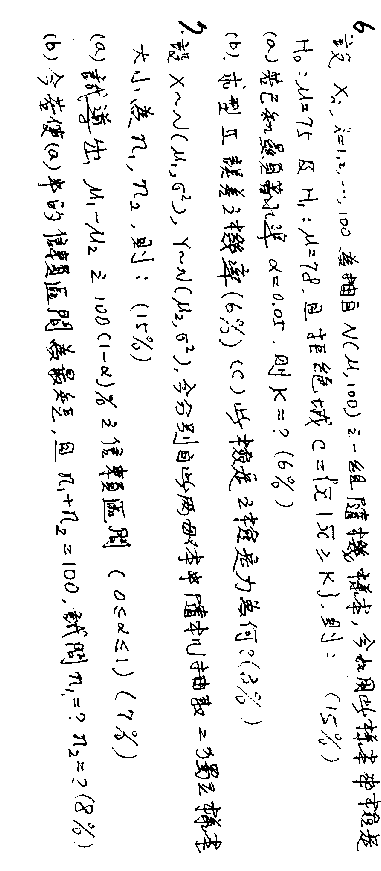 6. 設 Xi, i=1,2,…,100 為抽自 N(μ,100) 之一組隨機樣本, 今擬用此樣本來檢定
H₀:μ=75 及 H₁:μ=78, 且拒絕域 C={x̄|x̄≥K}, 則: (15%)
(a) 若已知顯著水準 α=0.05, 則 K=? (6%)
(b) 求型 II 誤差之機率(6%) (c) 此檢定之檢定力為何?(3%)
7. 設 X~N(μ₁,σ²), Y~N(μ₂,σ²), 今分別自此兩母體中隨機抽取二獨立樣本
大小為 n₁, n₂, 則: (15%)
(a) 試導出 μ₁-μ₂ 之 100(1-α)% 之信賴區間 (0≤α≤1) (7%)
(b) 今若使(a)中的信賴區間為最短, 且 n₁+n₂=100, 試問 n₁=? n₂=? (8%)